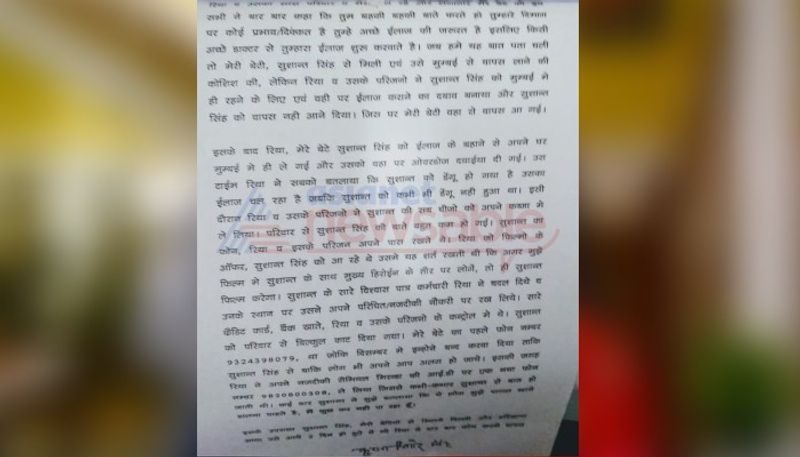 सभी ने बार बार कहा कि तुम बहकी बहकी बातें करते हो तुम्हारे दिमाग
पर कोई प्रभाव/दिक्कत है तुम्हे अच्छे ईलाज की जरूरत है इसलिए किसी
अच्छे डाक्टर से तुम्हारा ईलाज शुरू करवाते है। जब हमे यह बात पता चली
तो मेरी बेटी, सुशान्त सिंह से मिली एवं उसे मुम्बई से वापस लाने की
कोशिश की, लेकिन रिया व उसके परिजनो ने सुशान्त सिंह को मुम्बई मे
ही रहने के लिए एवं वही पर ईलाज कराने का दवाब बनाया और सुशान्त
सिंह को वापस नही आने दिया। जिस पर मेरी बेटी वहा से वापस आ गई।
इसके बाद रिया, मेरे बेटे सुशान्त सिंह को ईलाज के बहाने से अपने घर
मुम्बई मे ही ले गई और उसको वहा पर ओवरडोज दवाईया दी गई। उस
टाईम रिया ने सबको बतलाया कि सुशान्त को डेंगू हो गया है उसका
ईलाज चल रहा है जबकि सुशान्त को कभी भी डेंगू नही हुआ था। इसी
दौरान रिया व उसके परिजनो ने सुशान्त की सब चीजो को अपने कब्जा मे
ले लिया। परिवार से सुशान्त सिंह की बाते बहुत कम हो गई। सुशान्त का
फोन, रिया व इसके परिजन अपने पास रखते थे। रिया जो फिल्मो के
ऑफर, सुशान्त सिंह को आ रहे थे उसमे यह शर्त रखती थी कि अगर मुझे
फिल्म मे सुशान्त के साथ मुख्य हिरोईन के तौर पर लोगे, तो ही सुशान्त
फिल्म करेगा। सुशान्त के सारे विश्वास पात्र कर्मचारी रिया ने बदल दिये व
उनके स्थान पर उसने अपने परिचित/नजदीकी नौकरी पर रख लिये। सारे
क्रेडिट कार्ड, बैंक खाते, रिया व उसके परिजनो के कन्ट्रोल मे थे। सुशान्त
को परिवार से बिल्कुल काट दिया गया। मेरे बेटे का पहले फोन नम्बर
9324398079, था जोकि दिसम्बर मे इन्होने बन्द करवा दिया ताकि
सुशान्त सिंह से बाकि लोग भी अपने आप अलग हो जाये। इसकी जगह
रिया ने अपने नजदीकी सैमियल मिरण्डा की आई.डी पर एक नया फोन
नम्बर 9820800308, ले लिया जिससे कभी-कभार सुशान्त से बात हो
जाती थी। कई बार सुशान्त ने मुझे बतलाया कि ये लोग मुझे पागल खाने
डालना चाहते है, मै कुछ कर नही पा रहा हूँ।
इसके उपरान्त सुशान्त सिंह, मेरी बेटियो से मिलने दिल्ली और हरियाणा
asianet
newsable